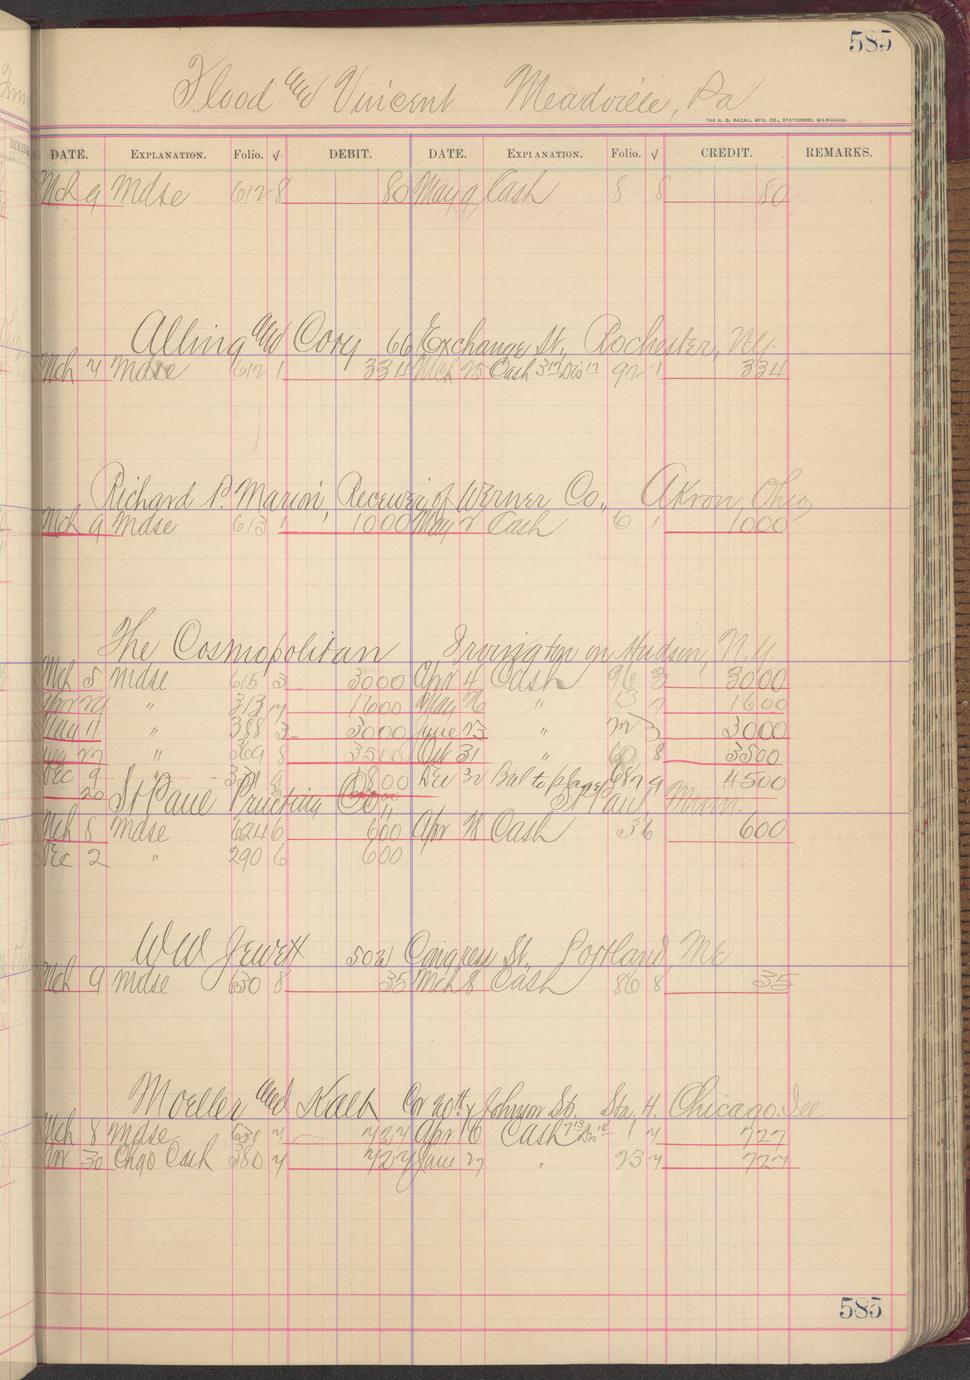 585
Flood and Vincent Meadville, Pa
THE H. G. RAZALL MFG. CO., STATIONERS, MILWAUKEE.
DATE. EXPLANATION. Folio. √ DEBIT. DATE. EXPLANATION. Folio. √ CREDIT. REMARKS.
Mch 9 Mdse 612 8 80 May 9 Cash 8 8 80
Alling and Cory 66 Exchange St., Rochester, N.Y.
Mch 7 Mdse 612 1 334 Mch 23 Cash 92 1 334
Richard P. Marvin, Receiver of Werner Co., Akron, Ohio
Mch 9 Mdse 613 1 1000 May 2 Cash 6 1 1000
The Cosmopolitan Irvington on Hudson, N.Y.
Mch 5 Mdse 615 3 3000 Apr 4 Cash 96 3 3000
Apr 29 " 313 7 1600 May 26 " 13 7 1600
May 11 " 388 3 3000 June 23 " 3 3000
27 " 369 8 3500 Oct 31 " 60 8 3500
Dec 9 " 9 Dec 32 Bal to page 687 9 4500
20
St Paul Printing Co., St Paul Minn.
Mch 8 Mdse 624 6 600 Apr 18 Cash 3 6 600
Dec 2 " 290 6 600
WW Jewett 502 Congress St., Portland Me
Mch 9 Mdse 630 8 35 Mch 8 Cash 86 8 35
Moeller and Kalb Cor 20th & Johnson St. Sta. H. Chicago Ill
Mch 8 Mdse 7 727 Apr 6 Cash 1 7 727
Apr 30 Chgo Cash 380 7 727 June 27 " 23 7 727
585